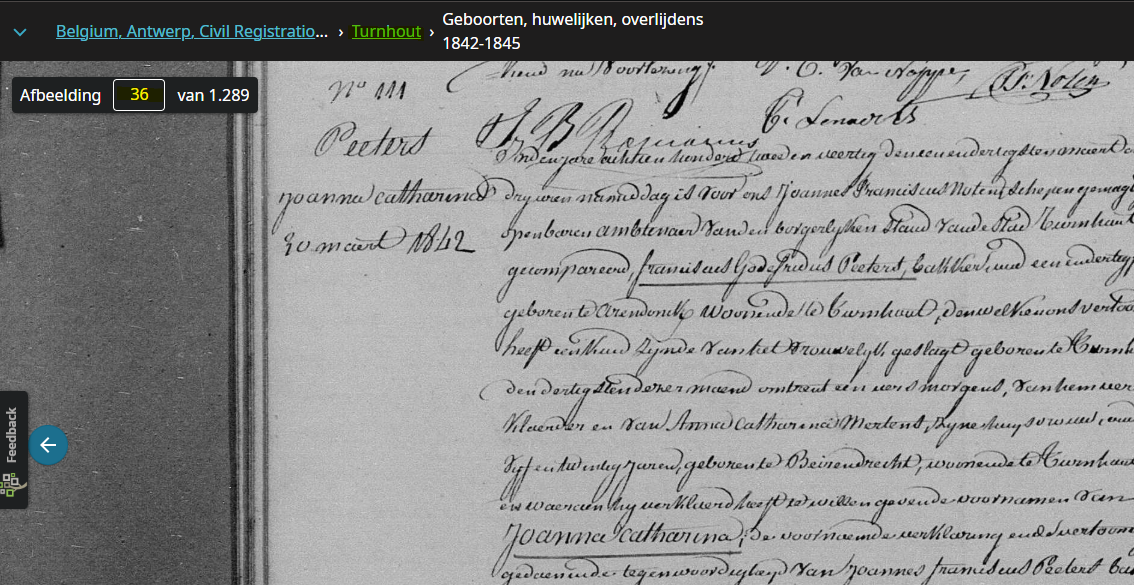 Belgium, Antwerp, Civil Registratio... › Turnhout › Geboorten, huwelijken, overlijdens
1842-1845
Afbeelding 36 van 1.289
Feedback
heid na Voorlezing.
Nº 111
Fr. Noten
C. Lenaerts
Peeters
In den jare achtien honderd twee en veertig den een en dertigsten maert
Joanna Catharina
dry uren namiddag is voor ons Joannes Franciscus Noten, schepen gemagt
30 maert 1842
openbaren ambtenaer van den borgerlyken stand van de stad Turnhout
gecompareerd, Franciscus Godefridus Peeters, bakker, oud een en dertig
geboren te Arendonk, woonende te Turnhout, denwelken ons vertoo
heeft een kind zynde van het vrouwelyk geslagt geboren te Turnh
den dertigsten dezer maend omtrent een uers morgens, van hem ver
klaerder en van Anna Catharina Mertens, zyne huysvrouw, oud
vyf en twintig jaren, geboren te Beirendrecht, woonende te Turnhout
en waeraen hy verklaerd heeft te willen geven de voornamen van
Joanna Catharina; de voornoemde verklaring en de vertoon
gedaen in de tegenwoordigheyd van Joannes Franciscus Peeters